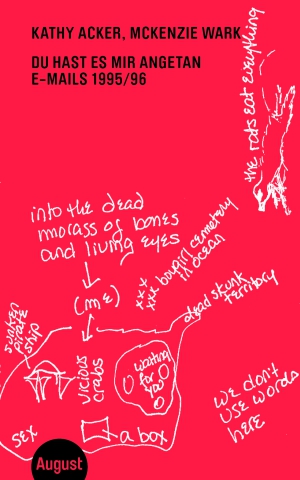 KATHY ACKER, MCKENZIE WARK
DU HAST ES MIR ANGETAN
E-MAILS 1995/96
the rats eat everything
into the dead
morass of bones
and living eyes
(me)
xx.x
xx.
cemetery
in ocean
dead skunk
territory
sunken
pirate
ship
vicious
crabs
waiting
for
you
we don't
use words
here
sex
a box
August